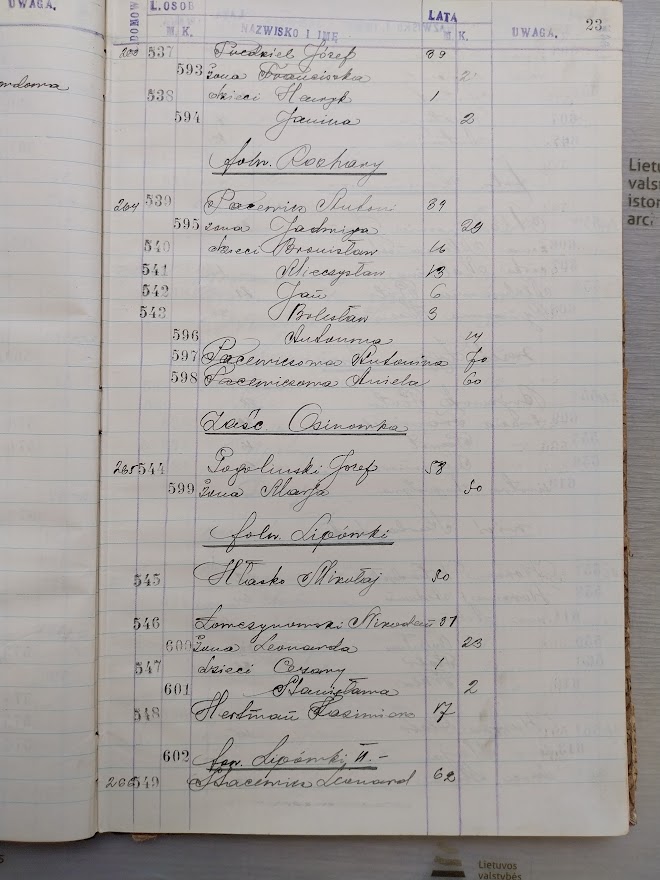 UWAGA.
DOMÓW
L. OSOB
M. K.
NAZWISKO I IMĘ
LATA
M. K.
UWAGA.
23
wdowa
203 537 Józef 39
593 żona Franciszka 2
538 dzieci Henryk 1
594 Janina 2
folw. Rochany
264 539 Pacewicz Antoni 39
595 żona Jadwiga 29
540 dzieci Bronisław 16
541 Mieczysław 13
542 Jan 6
543 Bolesław 3
596 Antonina 14
597 Pacewiczowa Antonina 70
598 Pacewiczowa Aniela 60
Zaść. Osinowka
265 544 Pogolinski Józef 58
599 żona Marja 50
folw. Lipówki
545 Hłasko Mikołaj 50
546 Nikodem 37
600 żona Leonarda 23
547 dzieci Cezary 1
601 Stanisława 2
548 Hertman Kazimierz 17
602 folw. Lipówki II.-
266 549 Stacewicz Leonard 62
Lietu
valst
istor
arc
Lietuvos
valstybės